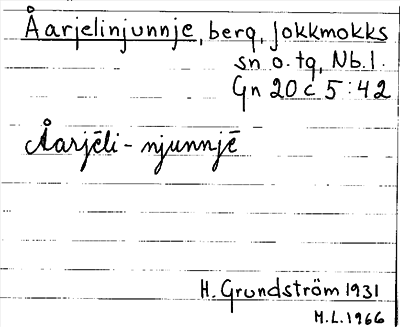 Åarjelinjunnje, berg, Jokkmokks
sn o. tg, Nb.l.
Gn 20 c 5:42
Åarjēli-njunnjē
H. Grundström 1931
M.L. 1966